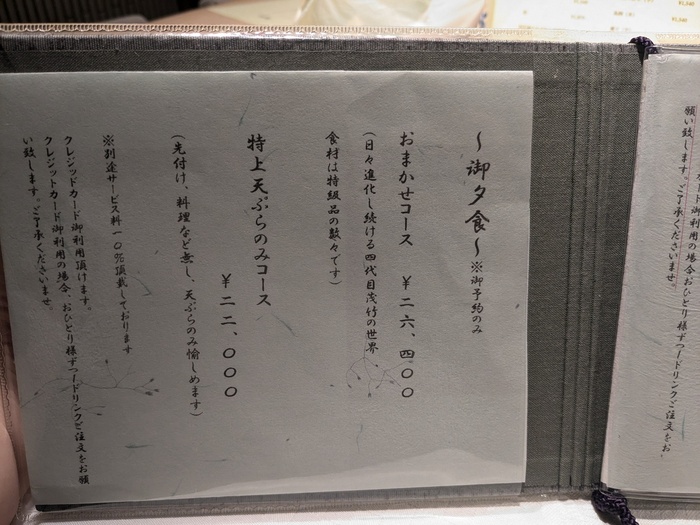 願い致します。ご了承くださいませ。
の場合、おひとり様ずつ一ドリンクご注文をお
～御夕食～※御予約のみ
おまかせコース ￥二六、四〇〇
(日々進化し続ける四代目茂竹の世界
食材は特級品の数々です)
特上天ぷらのみコース
￥二二、〇〇〇
(先付け、料理など無し、天ぷらのみ愉しめます)
※別途サービス料一〇％頂戴しております
クレジッドカード御利用頂けます。
クレジットカード御利用の場合、おひとり様ずつ一ドリンクご注文をお願
い致します。ご了承くださいませ。